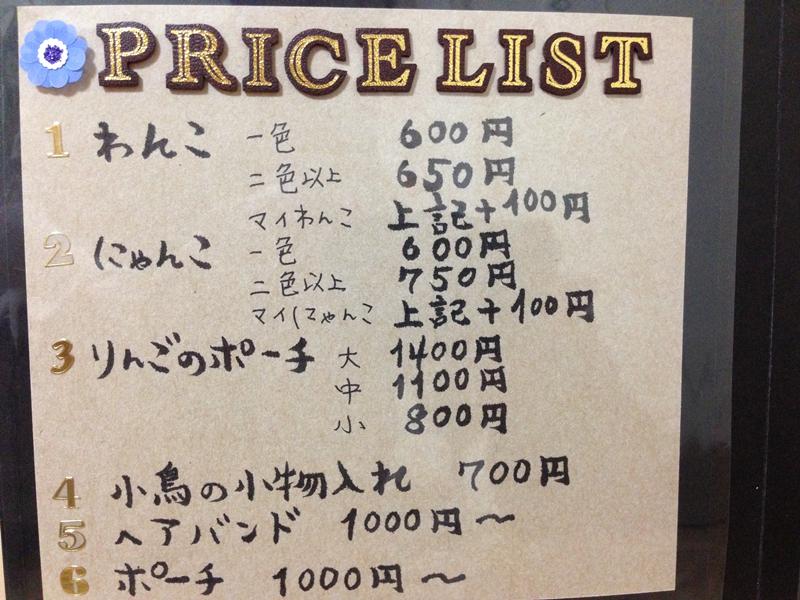 PRICE LIST
1 わんこ 一色 600円
二色以上 650円
マイわんこ 上記+100円
2 にゃんこ 一色 600円
二色以上 750円
マイにゃんこ 上記+100円
3 りんごのポーチ 大 1400円
中 1100円
小 800円
4 小鳥の小物入れ 700円
5 ヘアバンド 1000円〜
6 ポーチ 1000円〜